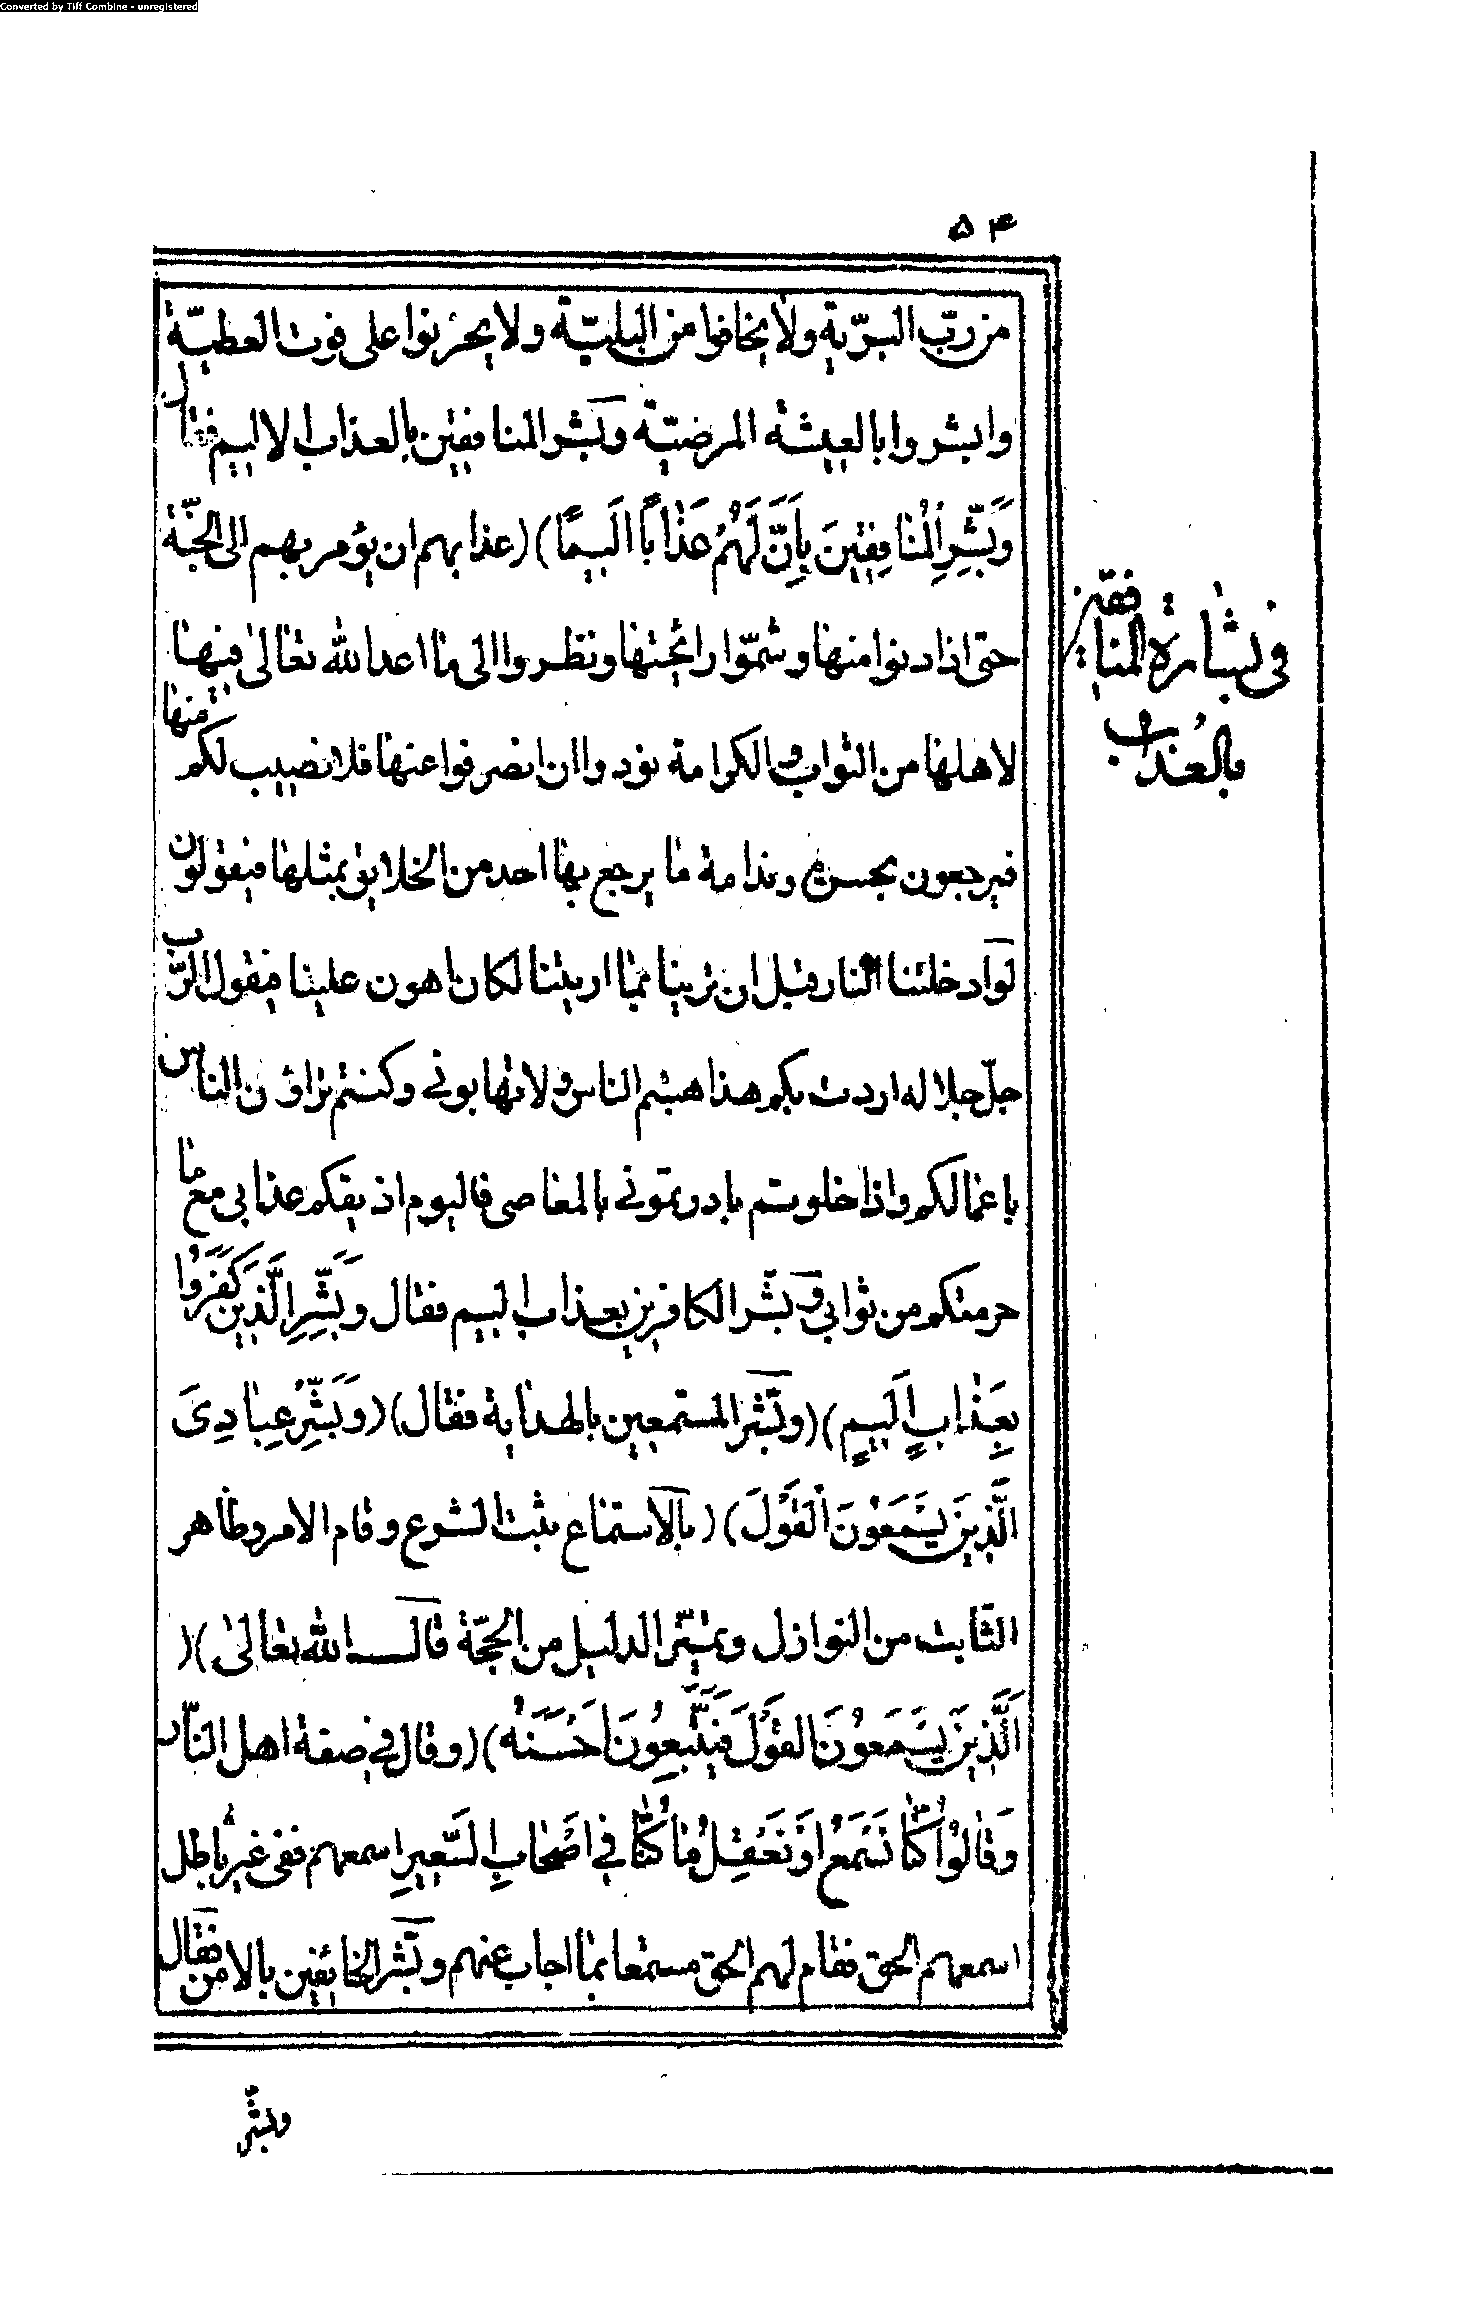 Converted by Tiff Combine - unregistered
۵۴
من ربّ البريّة ولا يخافوا من البليّة ولا يحزنوا على فوت العطيّة
وابشروا بالعيشة المرضيّة وبشر المنافقين بالعذاب الاليم فقال
وَبَشِّرِ الْمُنَافِقِينَ بِاَنَّ لَهُمْ عَذَابًا اَلِيمًا ) ( عذابهم ان يؤمر بهم الى الجنّة
حتى اذا دنوا منها وشمّوا رائحتها ونظروا الى ما اعد الله تعالى فيها
لاهلها من الثواب والكرامة نودوا ان انصرفوا عنها فلا نصيب لكم منها
فيرجعون بحسرة وندامة ما يرجع بها احد من الخلايق بمثلها فيقولون
لو ادخلتنا النار قبل ان ترينا ما اريتنا لكان اهون علينا فيقول الربّ
جلّ جلاله اردت بكم هذا هبتم الناس ولا تهابونى وكنتم تراؤن الناس
باعمالكم واذا خلوتم بادرتمونى بالمعاصى فاليوم اذيقكم عذابى مع ما
حرمتكم من ثوابى وبشّر الكافرين بعذاب اليم فقال وَبَشِّرِ الَّذِينَ كَفَرُوا
بِعَذَابٍ اَلِيمٍ ) ( وبشّر المستمعين بالهداية فقال ) ( وَبَشِّرْ عِبَادِىَ
الَّذِينَ يَسْتَمِعُونَ الْقَوْلَ ) ( بالاستماع يثبت الشرع وقام الامر وظاهر
الثابت من النوازل وتميّز الدليل من الحجّة قال الله تعالى ) (
اَلَّذِينَ يَسْتَمِعُونَ الْقَوْلَ فَيَتَّبِعُونَ اَحْسَنَهُ ) ( وقال فى صفة اهل النار
وَقَالُوا لَوْ كُنَّا نَسْمَعُ اَوْ نَعْقِلُ مَا كُنَّا فِى اَصْحَابِ السَّعِيرِ اسمعهم ففى غير باطل
اسمعهم الحق فقام لهم الحق مستمعا بما اجاب عنهم وبشّر الخائفين بالامن فقال
وبشّر
فى بشارة المنافقين
بالعذاب